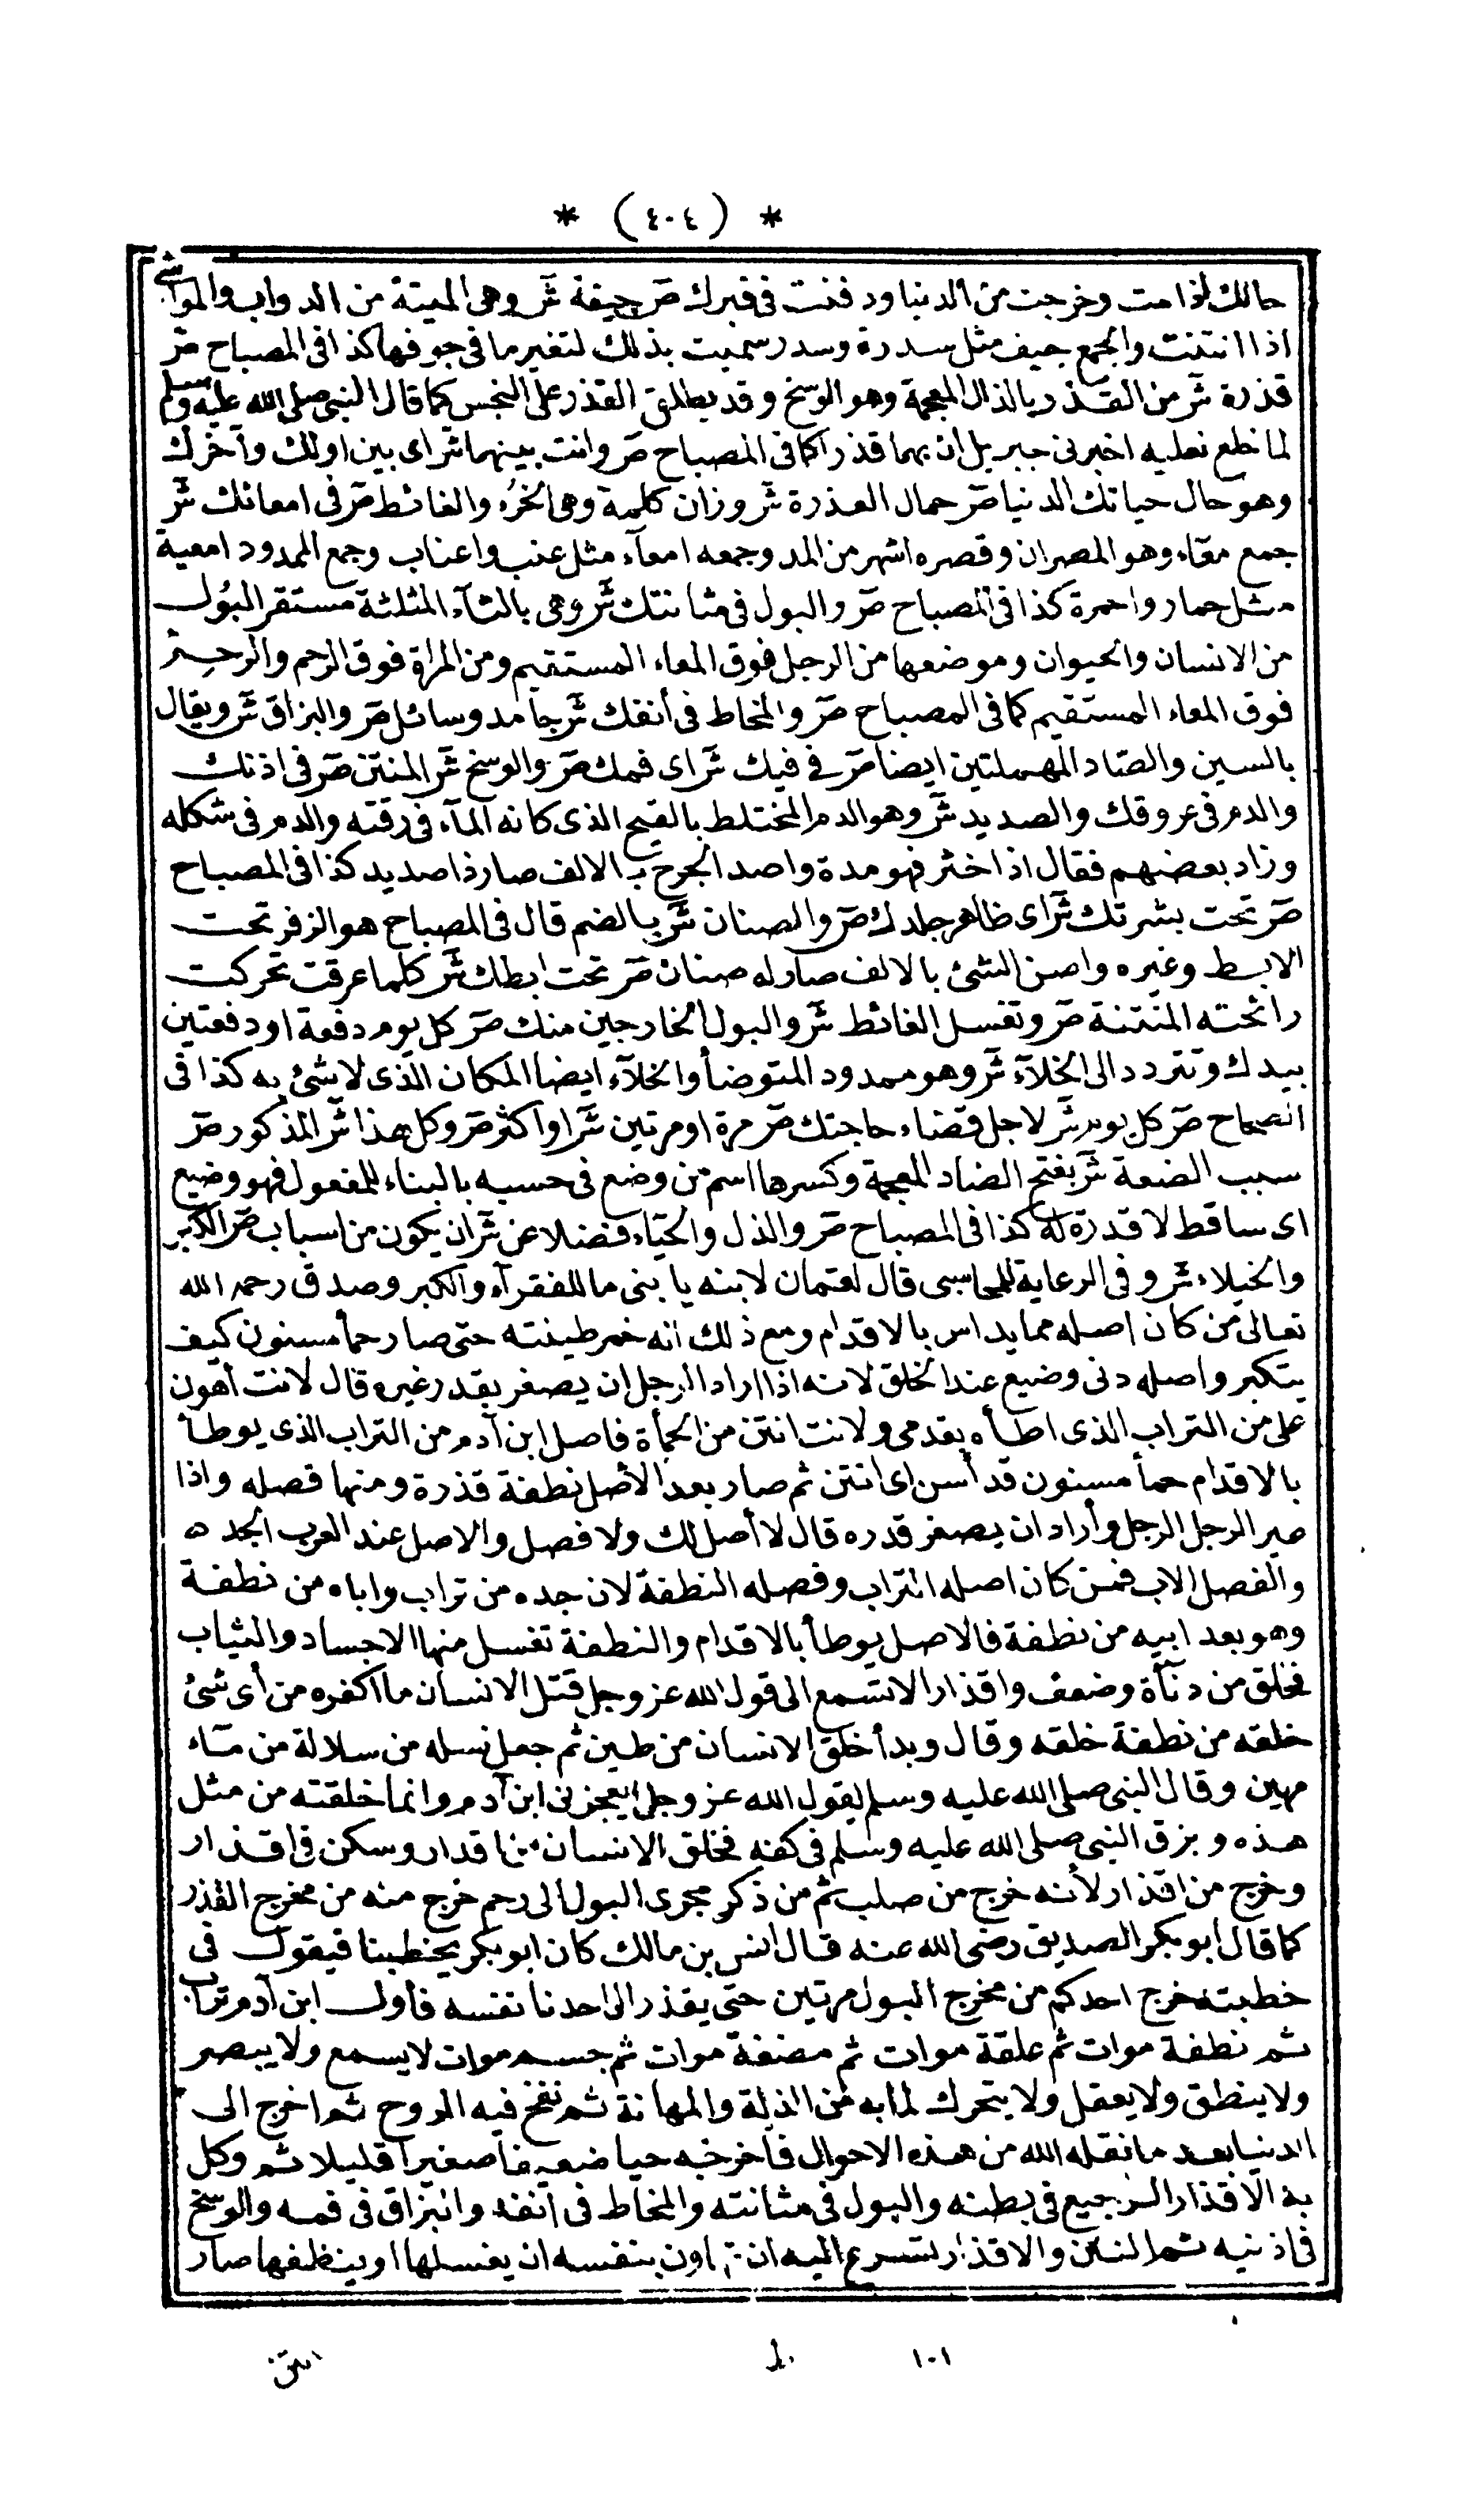 * (٤٠٤) *
حالك اذا مت وخرجت من الدنيا ودفنت فى قبرك صر جيفة شر وهى الميتة من الدواب والمواشى
اذا انتنت والجمع جيف مثل سدرة وسدر سميت بذلك لتغير ما فى جوفها كذا فى المصباح صر
قذرة شر من القذر بالذال المعجمة وهو الوسخ وقد يطلق القذر على النجس كما قال النبى صلى الله عليه وسلم
لما خلع نعليه اخبرنى جبريل ان بهما قذرا كما فى المصباح صر وانت بينهما شر اى بين اولك وآخرك
وهو حال حياتك الدنيا صر حمال العذرة شر وزان كلمة وهى الخرء والغائط صر فى امعائك شر
جمع معاء وهو المصران وقصره اشهر من المد وجمعه امعآء مثل عنب واعناب وجمع الممدود امعية
مثل حمار واحمرة كذا فى المصباح صر والبول فى مثانتك شر وهى بالثآء المثلثة مستقر البول
من الانسان والحيوان وموضعها من الرجل فوق المعاء المستقيم ومن المراة فوق الرحم والرحم
فوق المعاء المستقيم كما فى المصباح صر والمخاط فى أنفك شر جامد وسائل صر والبزاق شر ويقال
بالسين والصاد المهملتين ايضا صر فى فيك شر اى فمك صر والوسخ شر المنتن صر فى اذنك
والدم فى عروقك والصديد شر وهو الدم المختلط بالقيح الذى كانه المآء فى رقته والدم فى شكله
وزاد بعضهم فقال اذا خثر فهو مدة واصد الجرح بالالف صار ذا صديد كذا فى المصباح
صر تحت بشرتك شر اى ظاهر جلدك صر والصنان شر بالضم قال فى المصباح هو الزفر تحت
الابط وغيره واصن الشئ بالالف صار له صنان صر تحت ابطك شر كلما عرقت تحركت
رائحته المنتنة صر وتغسل الغائط شر والبول الخارجين منك صر كل يوم دفعة او دفعتين
بيدك وتتردد الى الخلآء شر وهو ممدود المتوضأ والخلآء ايضا المكان الذى لا شئ به كذا فى
الصحاح صر كل يوم شر لاجل قضاء حاجتك صر مرة او مرتين شر او اكثر صر وكل هذا شر المذكور صر
سبب الضعة شر بفتح الضاد المعجمة وكسرها اسم من وضع فى حسبه بالبناء للمفعول فهو وضيع
اى ساقط لا قدر له كذا فى المصباح صر والذل والحياء فضلا عن شر ان يكون من اسباب صر الكبر
والخيلاء شر وفى الرعاية للمحاسبى قال لقمان لابنه يا بنى ما للفقرآء والكبر وصدق رحمه الله
تعالى من كان اصله مما يداس بالاقدام ومع ذلك انه خمر طينته حتى صار حمأ مسنون كيف
يتكبر واصله دنى وضيع عند الخلق لانه اذا اراد الرجل ان يصغر بقدر غيره قال لانت أهون
على من التراب الذى اطأه بقدمى ولانت انتن من الحمأة فاصل ابن آدم من التراب الذى يوطأ
بالاقدام حمأ مسنون قد أسن اى انتن ثم صار بعد الأصل نطفة قذرة ومنها فصله واذا
عير الرجل الرجل وأراد ان يصغر قدره قال لا أصل لك ولا فصل والاصل عند العرب الجد ه
والفصل الاب فمن كان اصله التراب وفصله النطفة لان جده من تراب واباه من نطفة
وهو بعد ابيه من نطفة فالاصل يوطأ بالاقدام والنطفة تغسل منها الاجساد والثياب
فخلق من دنآة وضعف واقذار الا تسمع الى قول الله عز وجل قتل الانسان ما اكفره من أى شئ
خلقه من نطفة خلقه وقال وبدأ خلق الانسان من طين ثم جعل نسله من سلالة من مآء
مهين وقال النبى صلى الله عليه وسلم يقول الله عز وجل ايعجزنى ابن آدم وانما خلقته من مثل
هذه وبزق النبى صلى الله عليه وسلم فى كفه فخلق الانسان من اقذار وسكن فى اقذار
وخرج من اقذار لأنه خرج من صلب ثم من ذكر مجرى البول الى رحم خرج منه من مخرج القذر
كما قال ابو بكر الصديق رضى الله عنه قال انس بن مالك كان ابو بكر يخطبنا فيقول فى
خطبته خرج احدكم من مخرج البول مرتين حتى يقذر الى احدنا نفسه فأول ابن آدم تراب
ثم نطفة موات ثم علقة موات ثم مضغة موات ثم جسم موات لا يسمع ولا يبصر
ولا ينطق ولا يعقل ولا يتحرك لما به من الذلة والمهانة ثم نفخ فيه الروح ثم اخرج الى
الدنيا بعد ما نقله الله من هذه الاحوال فأخرجه حيا ضعيفا صغيرا قليلا ثم وكل
به الاقذار الرجيع فى بطنه والبول فى مثانته والمخاط فى أنفه والبزاق فى فمه والوسخ
فى اذنيه ثم النتن والاقذار تسرع اليه ان تهاون بنفسه ان يغسلها او ينظفها صار
١٠١